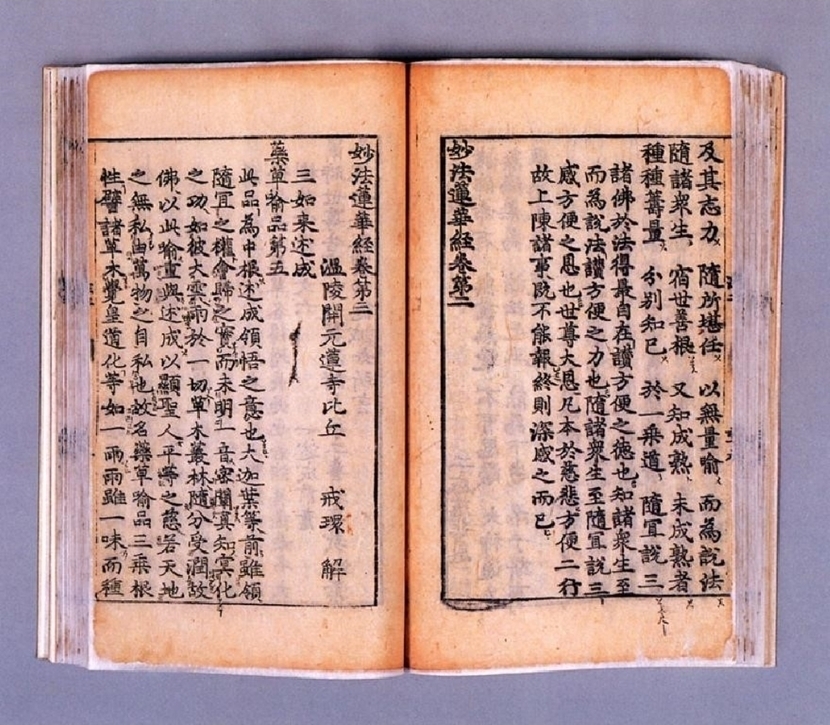 及其志力 隨所堪任 以無量喻 而為說法
隨諸衆生 宿世善根 又知成熟 未成熟者
種種籌量 分別知已 於一乘道 隨冝說三
諸佛於法得最自在讚方便之德也知諸衆生至
而為說法讚方便之力也隨諸衆生至隨冝說三
感方便之恩也世尊大恩凡本於慈悲方便二行
故上陳諸事旣不能報終則深感之而已
妙法蓮華經卷第二
妙法蓮華經卷第三
温陵開元蓮寺比丘 戒環 解
三如来述成
藥草喻品第五
此品為中根述成領悟之意也大迦葉等前雖領
隨冝之權會歸之實而未明一音密闡真知冥化
之功如彼大雲雨於一切草木叢林隨分受潤故
佛以此喻重與述成以顯聖人平等之慈若天地
之無私由萬物之自私也故名藥草喻品三乘根
性譬諸草木覺皇道化等如一雨雨雖一味而種